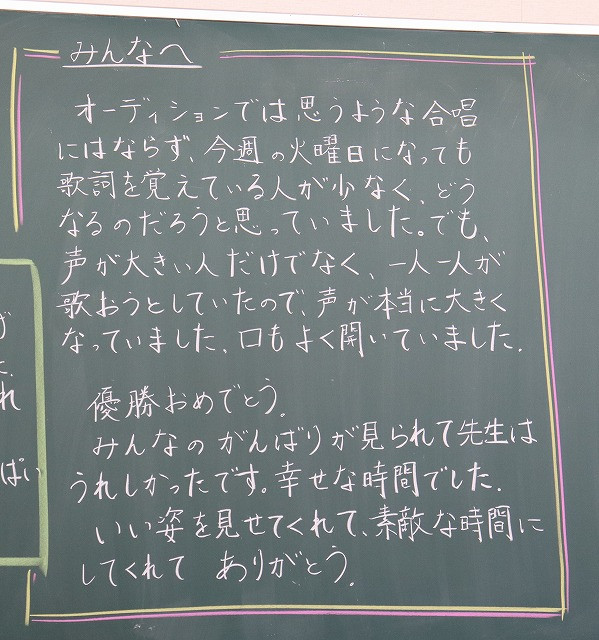 みんなへ
オーディションでは思うような合唱
にはならず、今週の火曜日になっても
歌詞を覚えている人が少なく、どう
なるのだろうと思っていました。でも、
声が大きい人だけでなく、一人一人が
歌おうとしていたので、声が本当に大きく
なっていました。口もよく開いていました。
優勝おめでとう。
みんなのがんばりが見られて先生は
うれしかったです。幸せな時間でした。
いい姿を見せてくれて、素敵な時間に
してくれて ありがとう。
た。
れ
ぱい